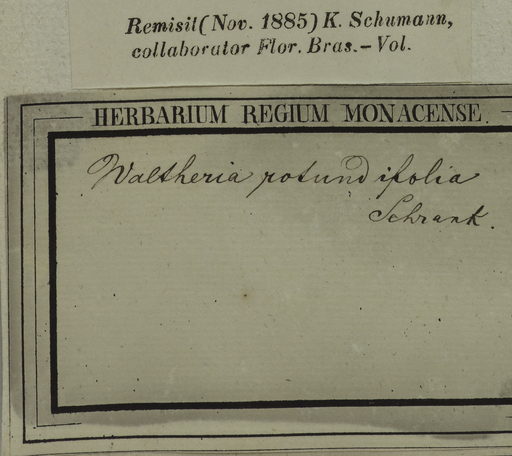 Remisit (Nov. 1885) K. Schumann,
collaborator Flor. Bras. – Vol.
HERBARIUM REGIUM MONACENSE.
Waltheria rotundifolia
Schrank.